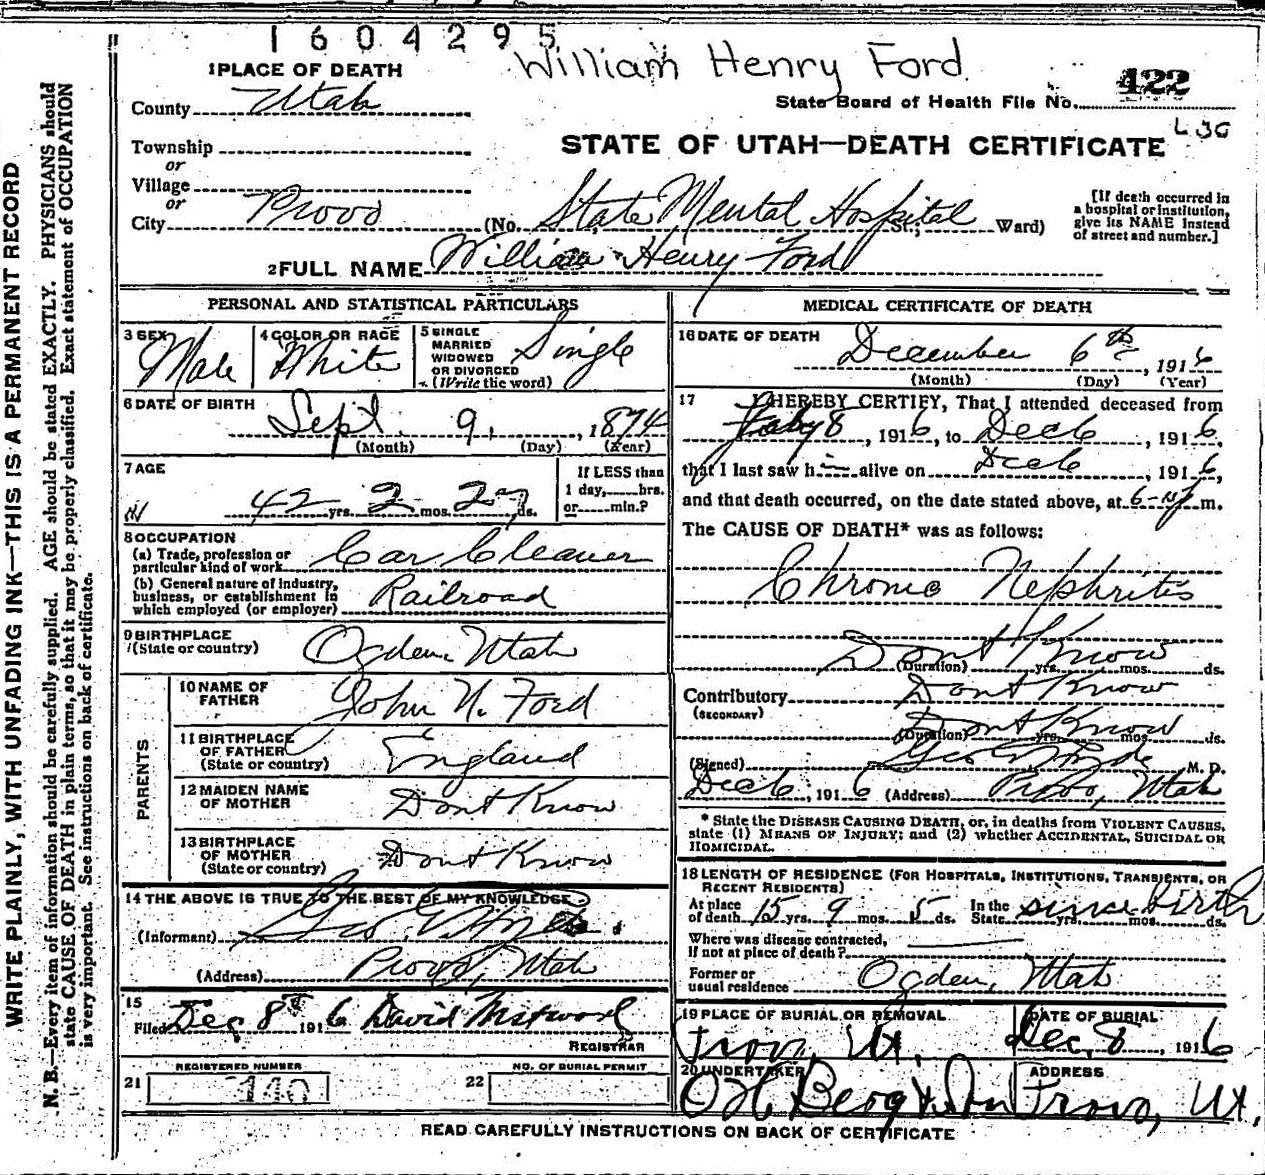 1604295
William Henry Ford
1 PLACE OF DEATH
County Utah
State Board of Health File No. 422
Township
or
Village
or
City Provo
STATE OF UTAH—DEATH CERTIFICATE
(No. State Mental Hospital St.; Ward)
[If death occurred in
a hospital or institution,
give its NAME instead
of street and number.]
2 FULL NAME William Henry Ford
PERSONAL AND STATISTICAL PARTICULARS
3 SEX Male
4 COLOR OR RACE White
5 SINGLE
MARRIED
WIDOWED
OR DIVORCED
(Write the word) Single
6 DATE OF BIRTH
Sept. 9, 1874
(Month) (Day) (Year)
7 AGE
42 yrs. 2 mos. 27 ds.
If LESS than
1 day, hrs.
or min.?
8 OCCUPATION
(a) Trade, profession or
particular kind of work Car Cleaner
(b) General nature of industry,
business, or establishment in
which employed (or employer) Railroad
9 BIRTHPLACE
(State or country) Ogden, Utah
PARENTS
10 NAME OF
FATHER John N. Ford
11 BIRTHPLACE
OF FATHER
(State or country) England
12 MAIDEN NAME
OF MOTHER Dont Know
13 BIRTHPLACE
OF MOTHER
(State or country) Dont Know
14 THE ABOVE IS TRUE TO THE BEST OF MY KNOWLEDGE
(Informant) Geo.
(Address) Provo, Utah
15
Filed Dec 8th 1916 David
REGISTRAR
REGISTERED NUMBER
21 140
NO. OF BURIAL PERMIT
22
MEDICAL CERTIFICATE OF DEATH
16 DATE OF DEATH
December 6th, 1916
(Month) (Day) (Year)
17 I HEREBY CERTIFY, That I attended deceased from
8, 1916, to Dec 6, 1916,
that I last saw him alive on Dec 6, 1916,
and that death occurred, on the date stated above, at 6- m.
The CAUSE OF DEATH* was as follows:
Chronic Nephritis
Dont Know
(Duration) yrs. mos. ds.
Contributory Dont Know
(SECONDARY)
Dont Know
(Duration) yrs. mos. ds.
(Signed) Geo M. D.
Dec 6, 1916 (Address) Provo, Utah
* State the DISEASE CAUSING DEATH, or, in deaths from VIOLENT CAUSES,
state (1) MEANS OF INJURY; and (2) whether ACCIDENTAL, SUICIDAL OR
HOMICIDAL.
18 LENGTH OF RESIDENCE (FOR HOSPITALS, INSTITUTIONS, TRANSIENTS, OR
RECENT RESIDENTS)
At place
of death 15 yrs. 9 mos. 5 ds. In the
State since birth yrs. mos. ds.
Where was disease contracted,
if not at place of death?
Former or
usual residence Ogden, Utah
19 PLACE OF BURIAL OR REMOVAL
Provo, Ut.
DATE OF BURIAL
Dec. 8, 1916
20 UNDERTAKER
O H Berg & Son
ADDRESS
Provo, Ut.
READ CAREFULLY INSTRUCTIONS ON BACK OF CERTIFICATE
WRITE PLAINLY, WITH UNFADING INK—THIS IS A PERMANENT RECORD
N. B.—Every item of information should be carefully supplied. AGE should be stated EXACTLY. PHYSICIANS should
state CAUSE OF DEATH in plain terms, so that it may be properly classified. Exact statement of OCCUPATION
is very important. See instructions on back of certificate.